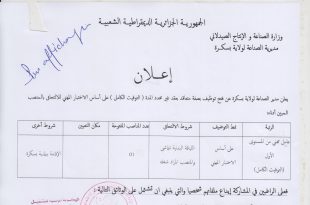 الجمهورية الجزائرية الديمقراطية الشعبية
وزارة الصناعة و الإنتاج الصيدلاني
مديرية الصناعة لولاية بسكرة
إعــلان
يعلن مدير الصناعة لولاية بسكرة عن فتح توظيف بصفة متعاقد بعقد غير محدد المدة ( التوقيت الكامل ) على أساس الاختبار المهني للالتحاق بالمنصب
المبين أدناه:
الرتبة نمط التوظيف شروط الالتحاق عدد المناصب المفتوحة مكان التعيين شروط أخرى
عامل مهني من المستوى الأول (التوقيت الكامل) على أساس الاختبار المهني اللياقة البدنية والمنصب المراد شغله الإقامة بولاية بسكرة
فعلى الراغبين في المشاركة إيداع ملفاتهم شخصيا والتي ينبغي ان تشتمل على الوثائق التالية: